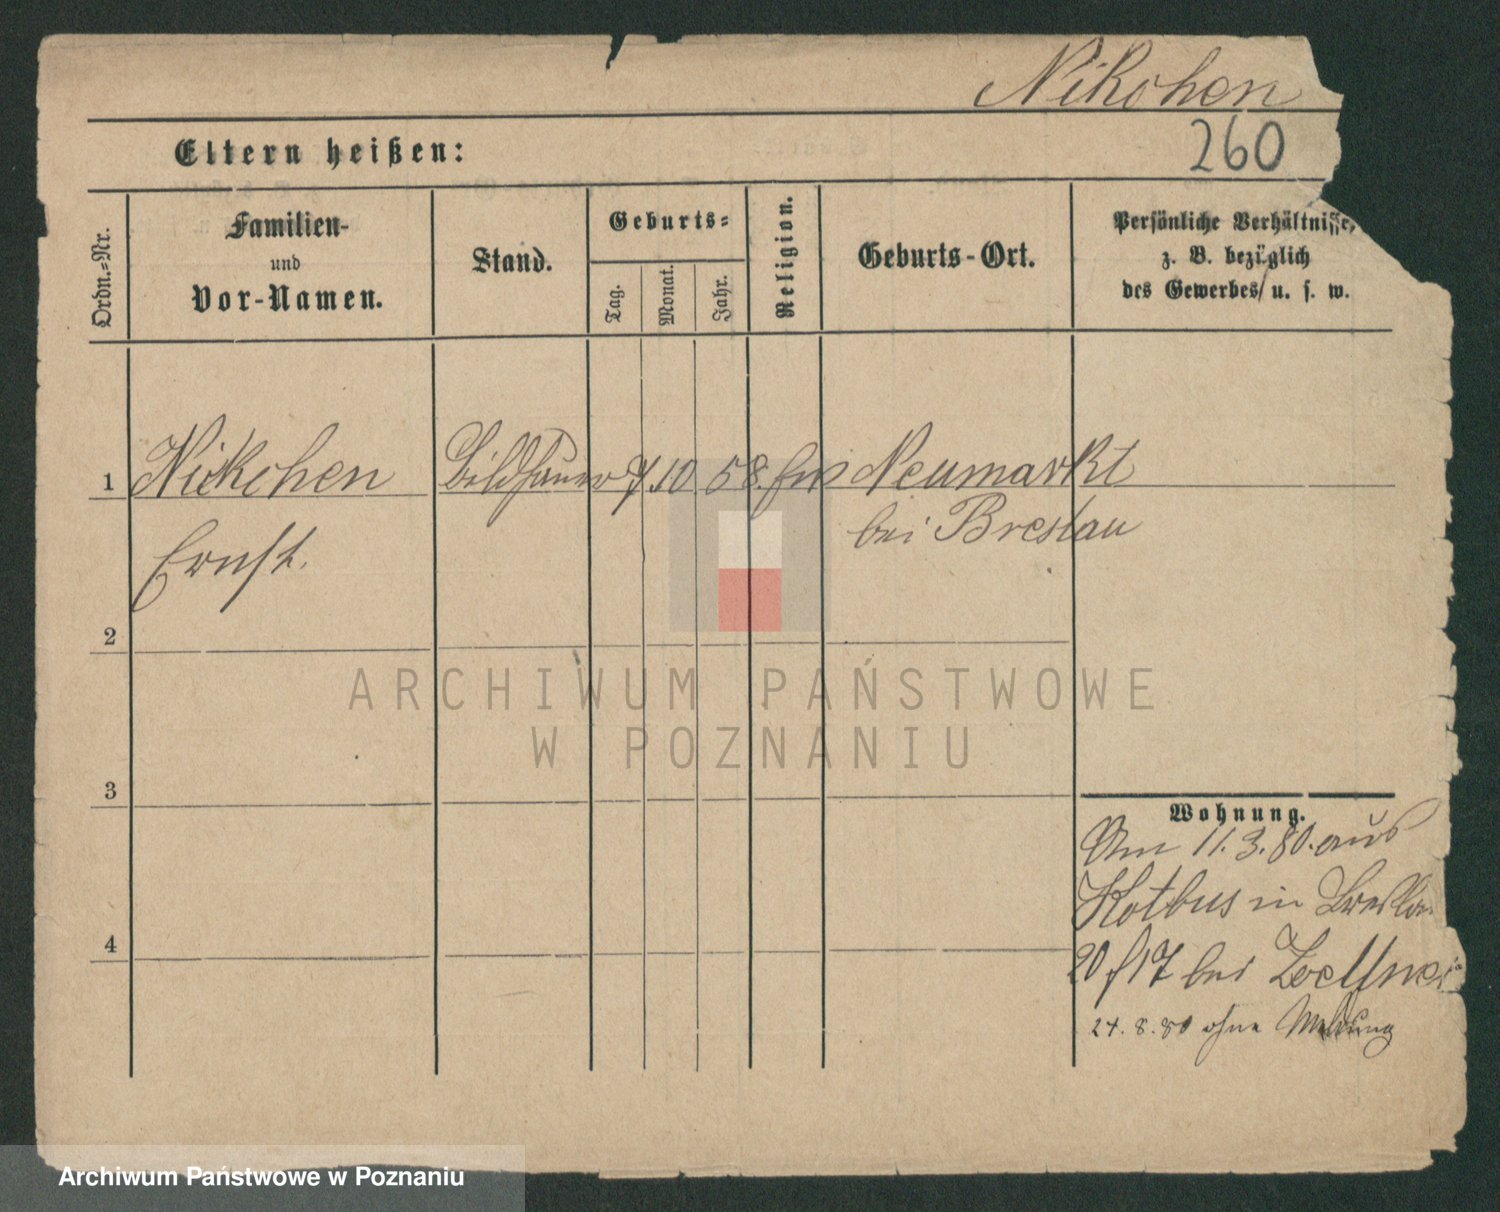 Nikohen
260
Eltern heißen:
Ordn.-Nr.
Familien-
und
Vor-Namen.
Stand.
Geburts-
Tag.
Monat.
Jahr.
Religion.
Geburts-Ort.
Persönliche Verhältnisse,
z. B. bezüglich
des Gewerbes u. s. w.
1 Nickchen Bildhauer 7. 10 58. Neumarkt
Ernst. bei Breslau
2
3
4
Wohnung.
Am 11.3.80. aus
Kotbus in Bresla
20/17 bei
24. 8. 80 ohne Meldung
ARCHIWUM PAŃSTWOWE
W POZNANIU
Archiwum Państwowe w Poznaniu